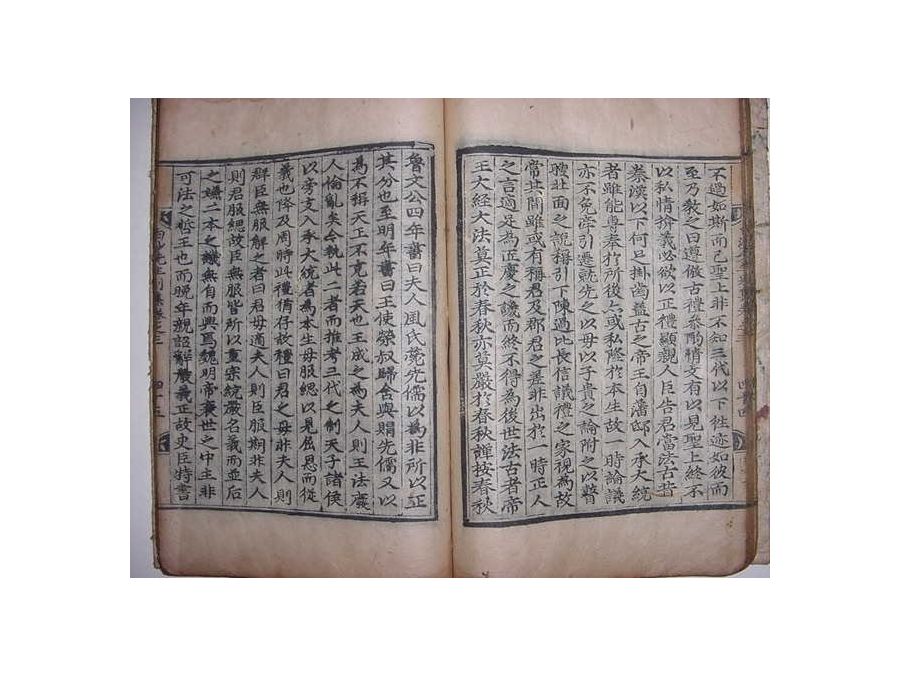 不過如斯而已聖上非不知三代以下徃迹如彼而
至乃敎之曰遵倣古禮叅酌情文有以見聖上終不
以私情揜義必欲以正禮顯親人臣告君當法古昔
秦漢以下何足掛齒盖古之帝王自藩邸入承大統
者雖能專奉於所後亦或私隆於本生故一時論議
亦不免牽引遷就先之以母以子貴之論附之以
面之說稱引下陳過此長信議禮之家視為故
常其間雖或有稱君及郡君之差非出於一時正人
之言適足為正慶之譏而終不得為後世法古者帝
王大經大法莫正於春秋亦莫嚴於春秋謹按春秋
魯文公四年書曰夫人風氏薨先儒以為非所以正
其分也至明年書曰王使榮叔歸含與賵先儒又以
為不稱天王不克若天也王成之為夫人則王法廢
人倫亂矣今執此二者而推考三代之制天子諸侯
以旁支入承大統者為本生母服緦以見屈恩而從
義也降及周時此禮猶存故禮曰君之母非夫人則
群臣無服解之者曰君母適夫人則臣服期非夫人
則君服緦故臣無服皆所以重宗統嚴名義而並后
之嫌二本之譏無自而興焉魏明帝衰世之中主非
可法之哲王也而晩年親詔辭嚴義正故史臣特書
四十五